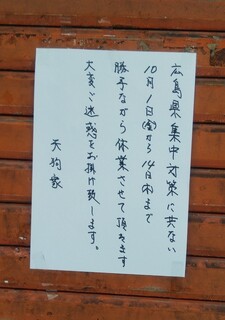 広島県集中対策に共ない
10月1日(金)から14日(木)まで
勝手ながら休業させて頂きます
大変ご迷惑をお掛け致します。
天狗家